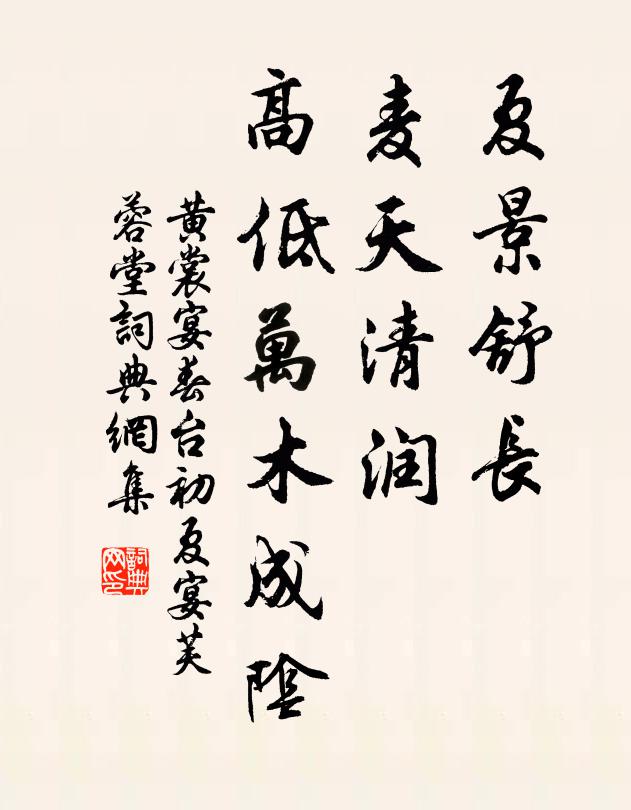 夏景舒長
麦天清润
高低萬木成陰
黄裳宴春台初夏宴芙
蓉堂詞典網集
詞典网印